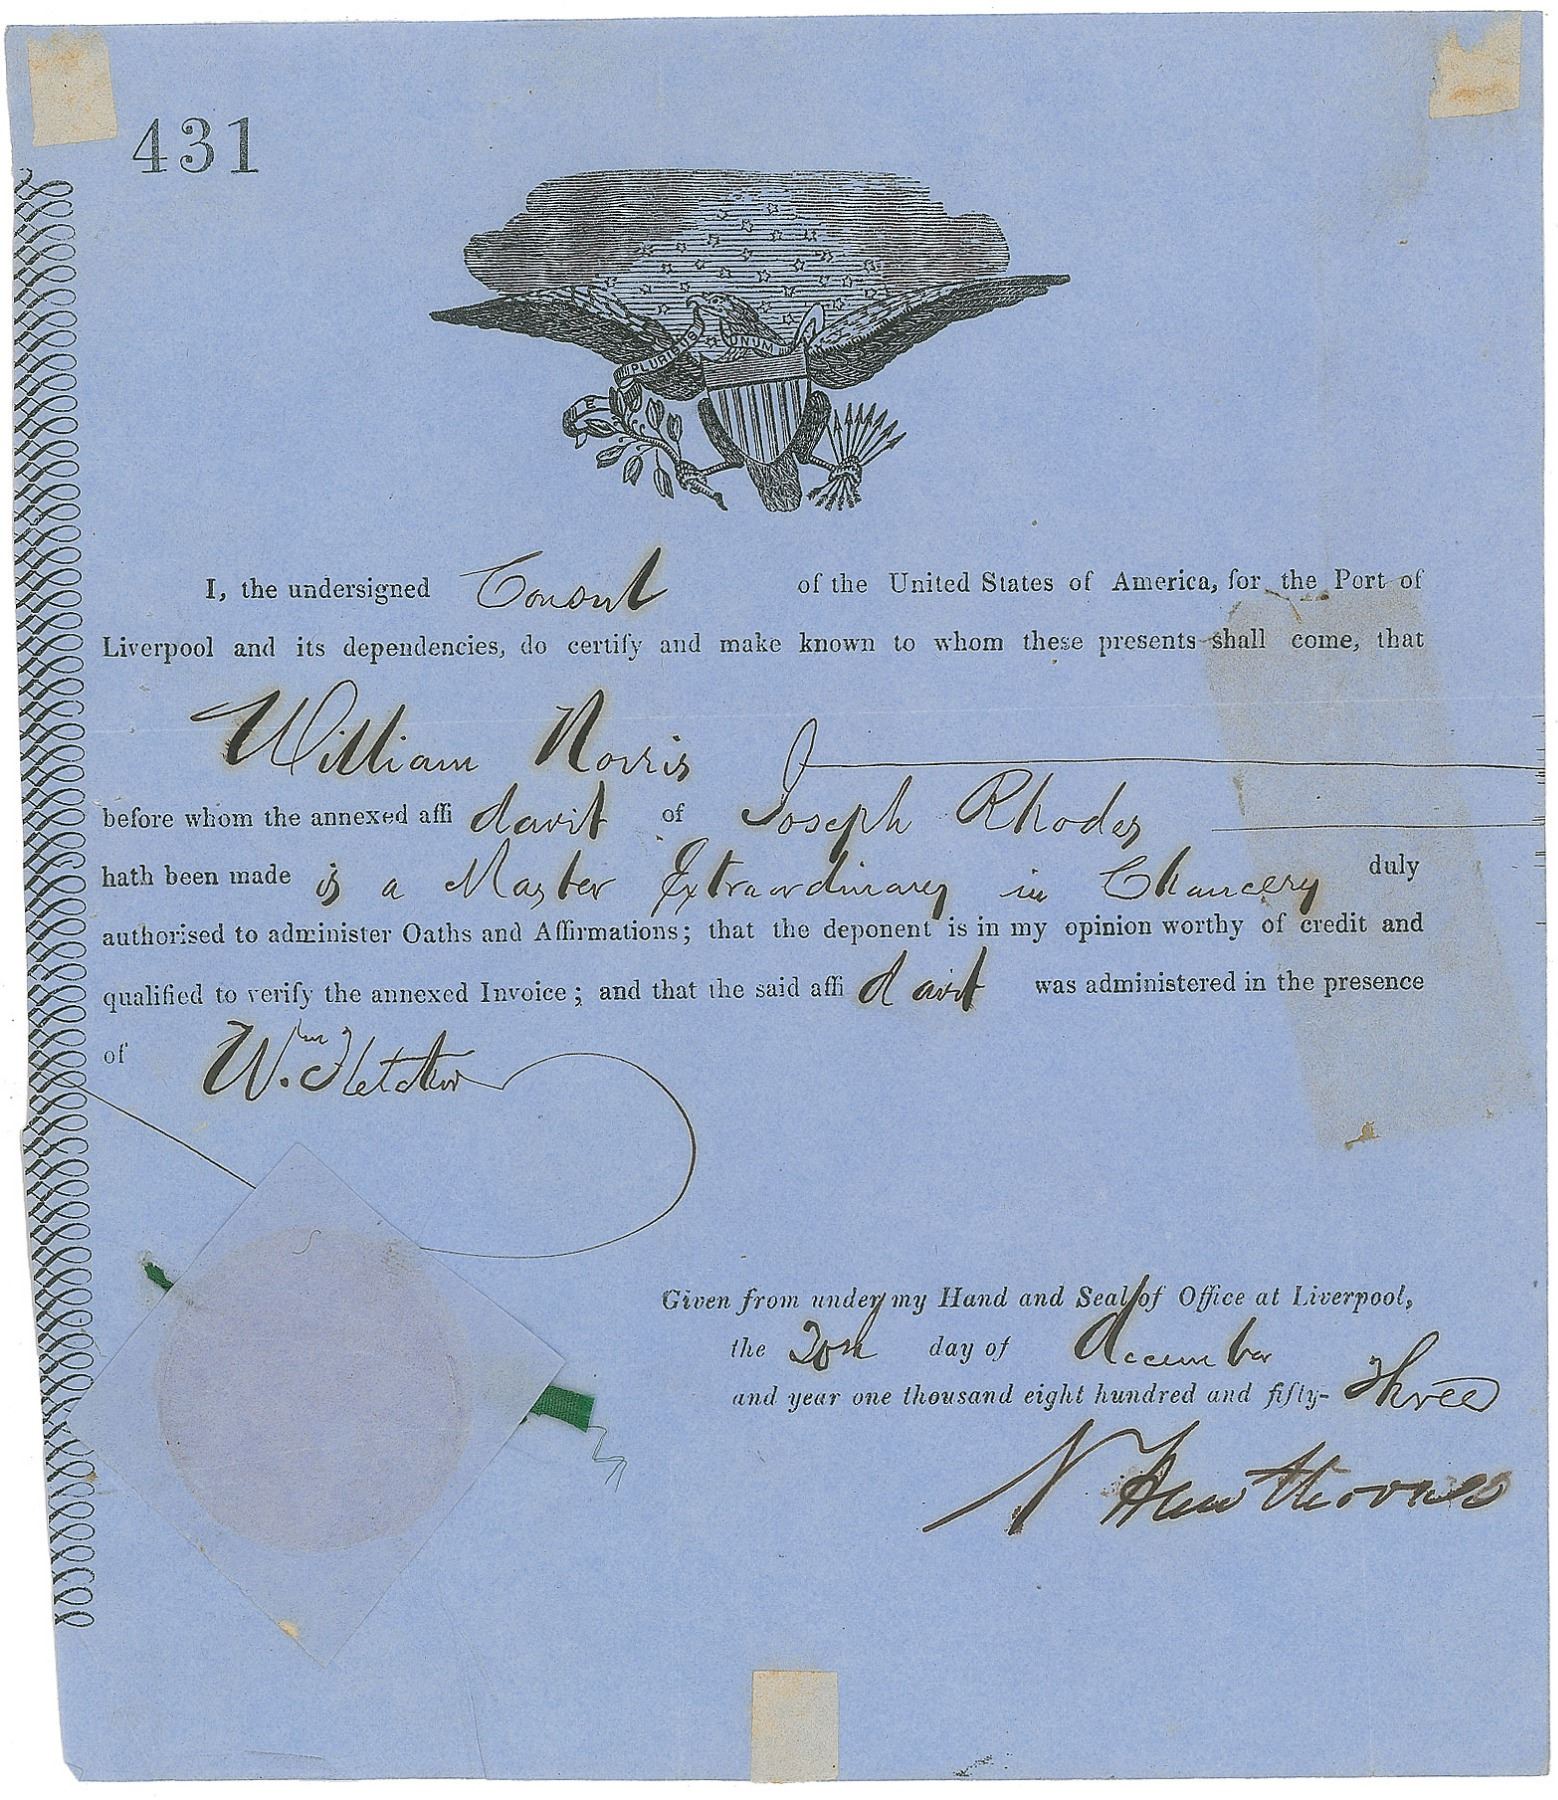 431
E PLURIBUS UNUM
I, the undersigned Consul of the United States of America, for the Port of
Liverpool and its dependencies, do certify and make known to whom these presents shall come, that
William Norris
before whom the annexed affi davit of Joseph Rhodes
hath been made is a Master Extraordinary in Chancery duly
authorised to administer Oaths and Affirmations; that the deponent is in my opinion worthy of credit and
qualified to verify the annexed Invoice; and that the said affi davit was administered in the presence
of Wm Fletcher
Given from under my Hand and Seal of Office at Liverpool,
the 20th day of December
and year one thousand eight hundred and fifty- three
N Hawthorne